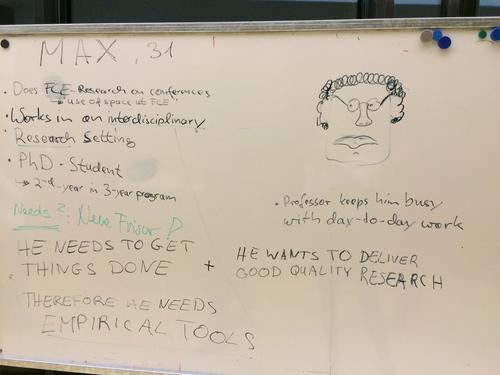 MAX, 31
• Does FCE-Research on conferences
↳ "use of space at FCE"
• Works in an interdisciplinary
Research Setting
• PhD-Student
↳ 2nd-year in 3-year program
Needs?: Neue Frisur :P
HE NEEDS TO GET
THINGS DONE
+
• Professor keeps him busy
with day-to-day work
HE WANTS TO DELIVER
GOOD QUALITY RESEARCH
THEREFORE HE NEEDS
EMPIRICAL TOOLS